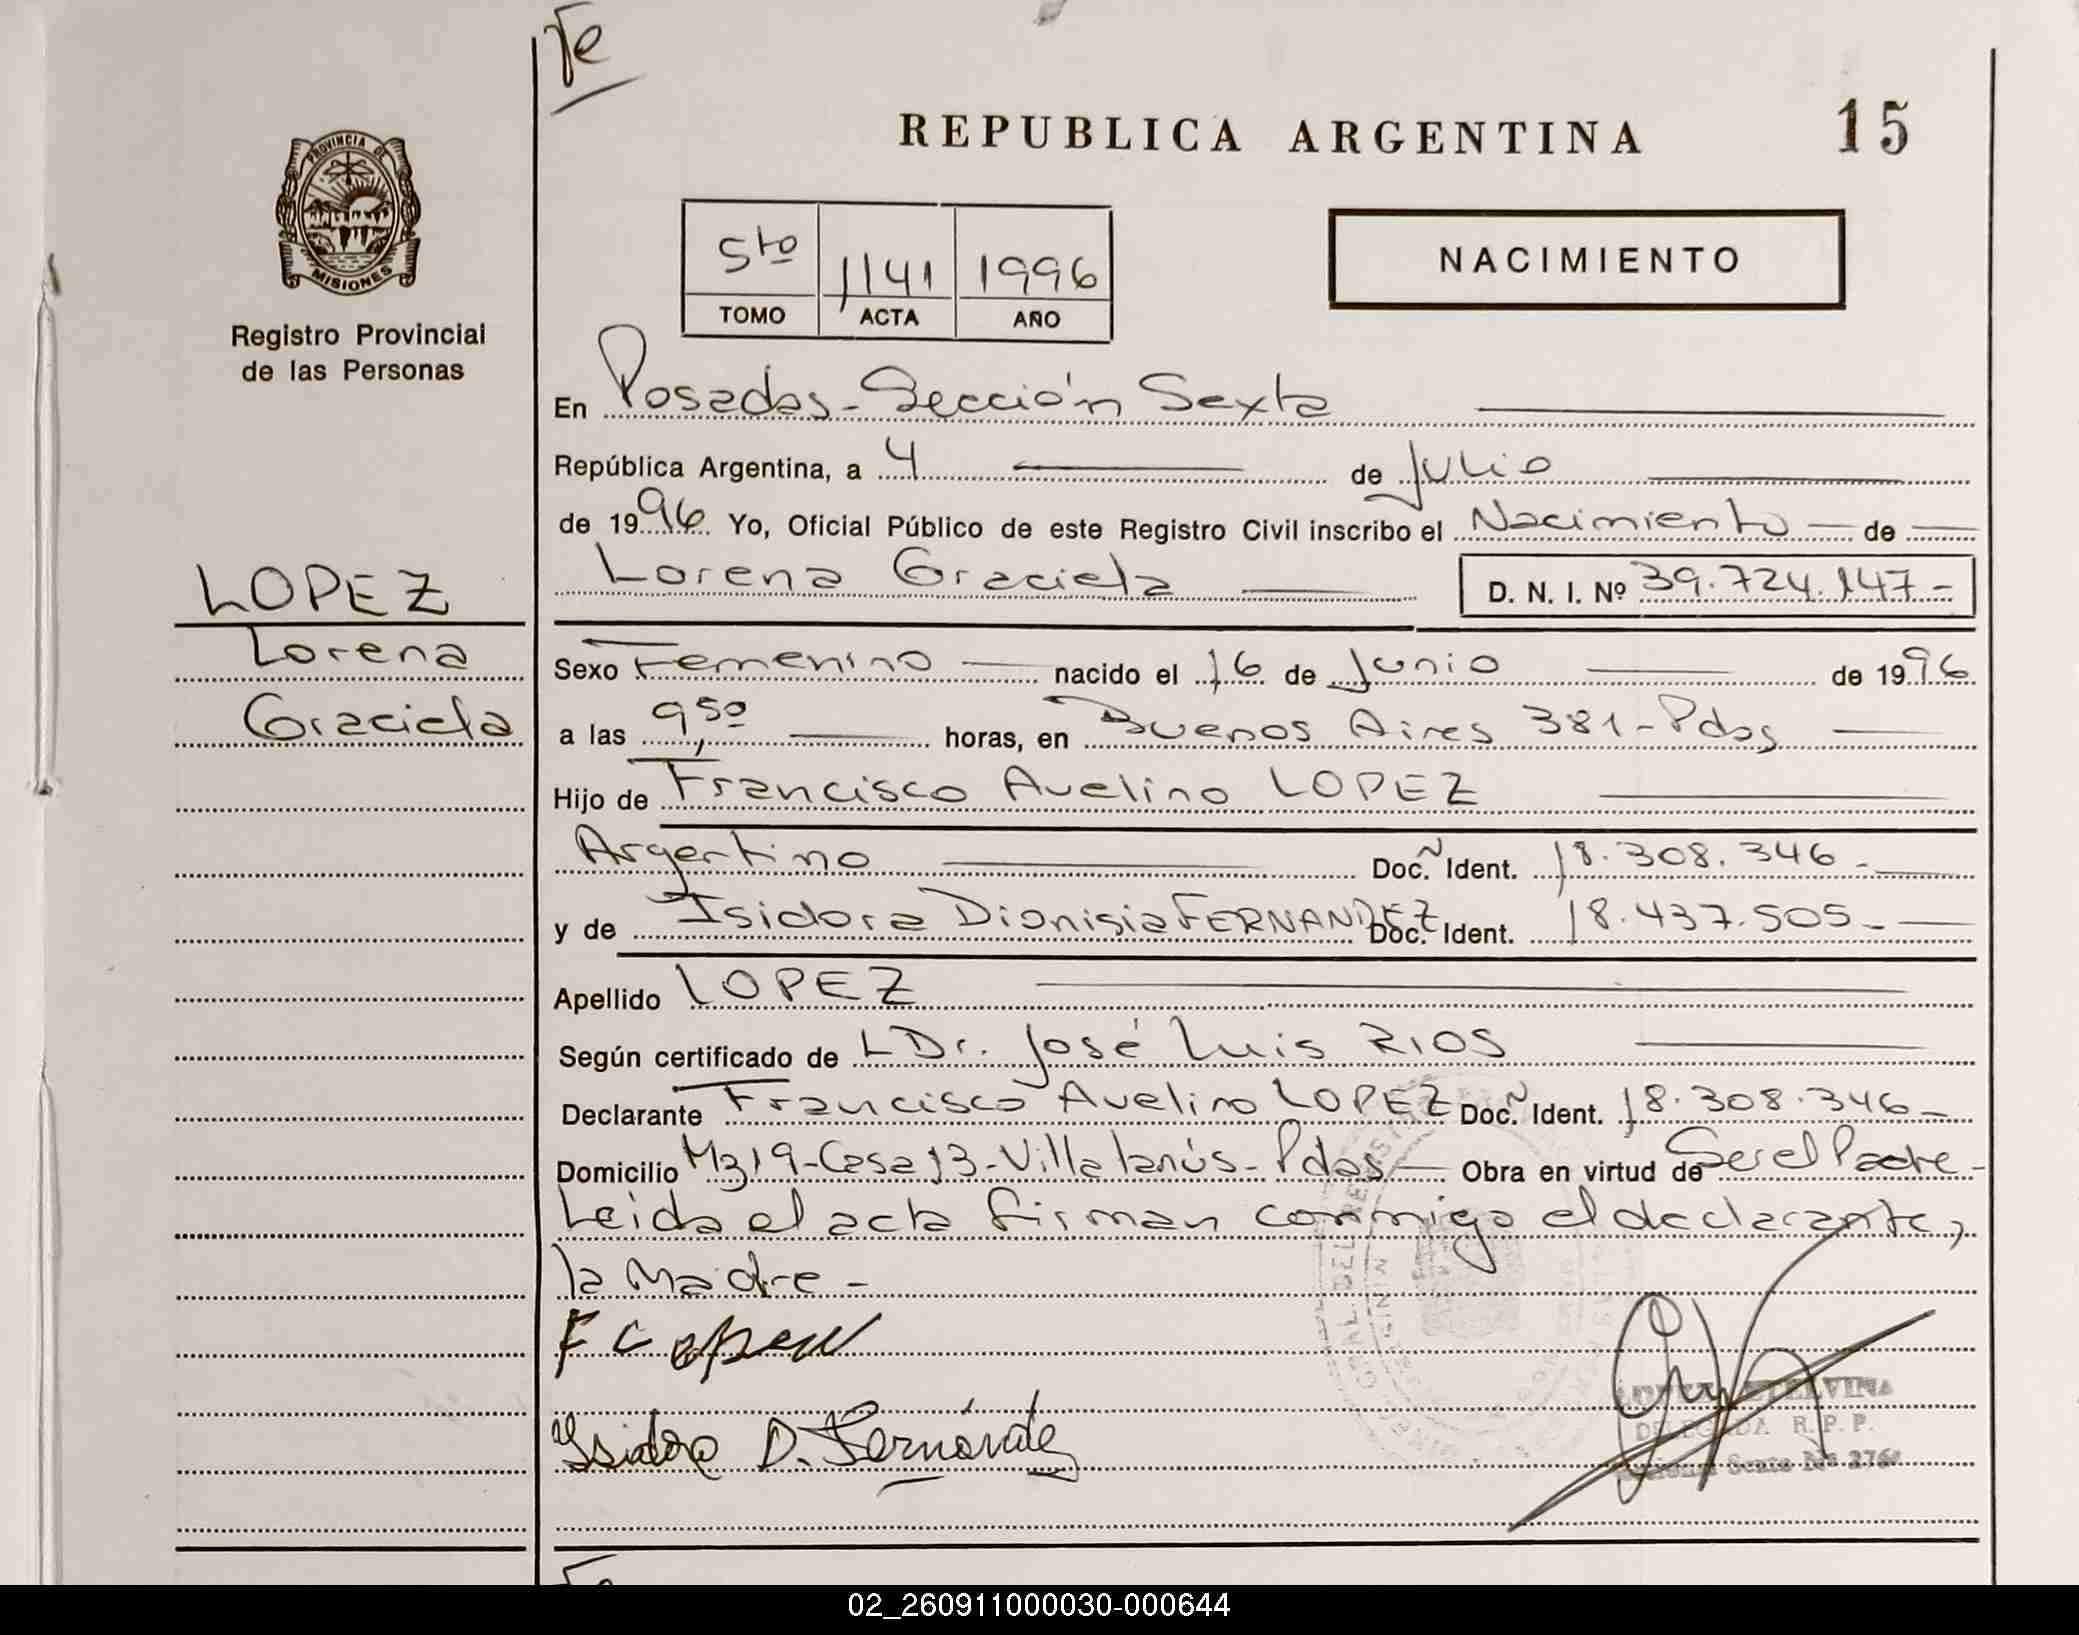 Te
REPUBLICA ARGENTINA
15
PROVINCIA DE
MISIONES
Registro Provincial
de las Personas
5to 1141 1996
TOMO ACTA AÑO
NACIMIENTO
En Posadas - Sección Sexta
República Argentina, a 4 de Julio
de 1996 Yo, Oficial Público de este Registro Civil inscribo el Nacimiento de
Lorena Graciela D. N. I. Nº 39.724.147-
LOPEZ
Lorena
Graciela
Sexo Femenino nacido el 16 de Junio de 1996
a las 9,50 horas, en Buenos Aires 381 - Pdas
Hijo de Francisco Avelino LOPEZ
Argentino Doc. Ident. 18.308.346-
y de Isidora Dionisia FERNANDEZ Doc. Ident. 18.437.505-
Apellido LOPEZ
Según certificado de L Dr. José Luis RIOS
Declarante Francisco Avelino LOPEZ Doc. Ident. 18.308.346-
Domicilio M319-Casa 13-Villa Lanús-Pdas- Obra en virtud de Ser el Padre-
Leida el acta firman conmigo el declarante,
la Madre-
Isidora D. Fernández
ETELVINA
DELEGADA R. P. P.
Sexta Nº 276
02_260911000030-000644